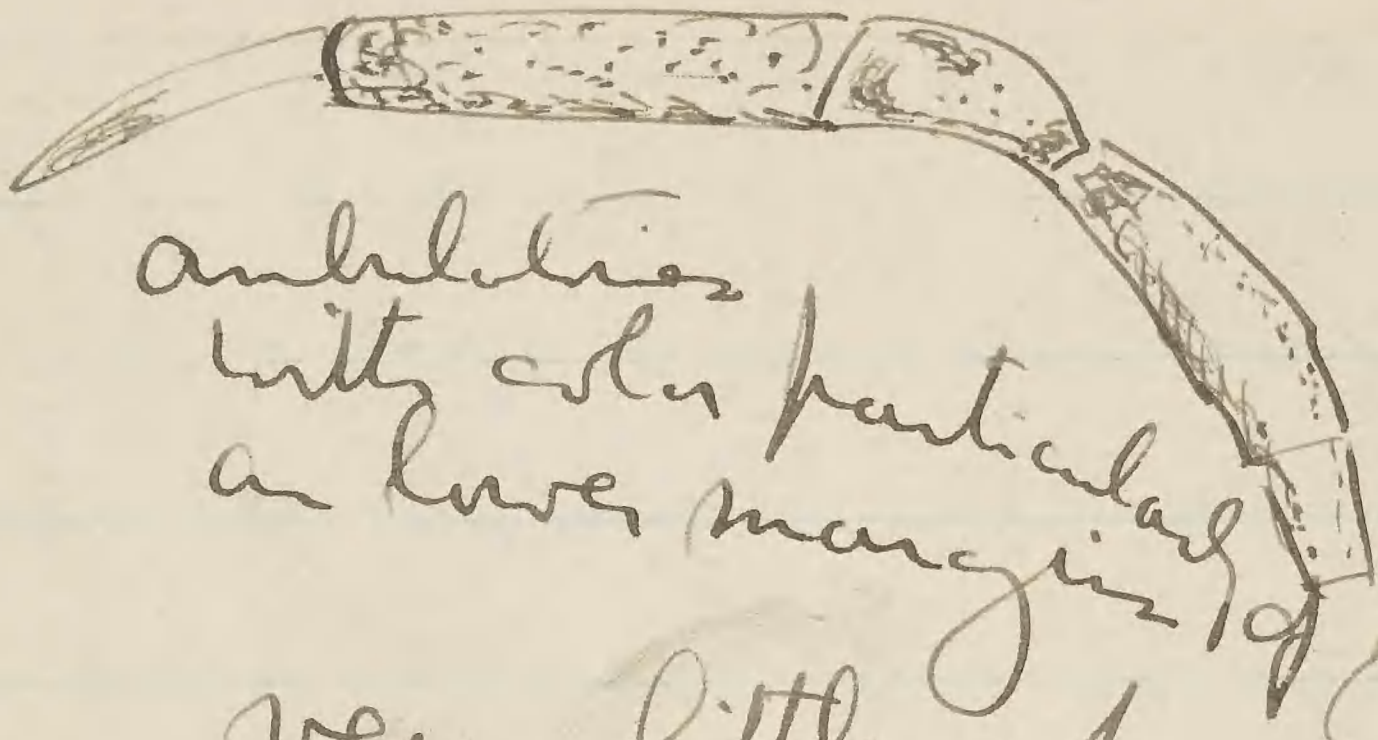 ambulatories
with color particularly
on lower margins of
very little